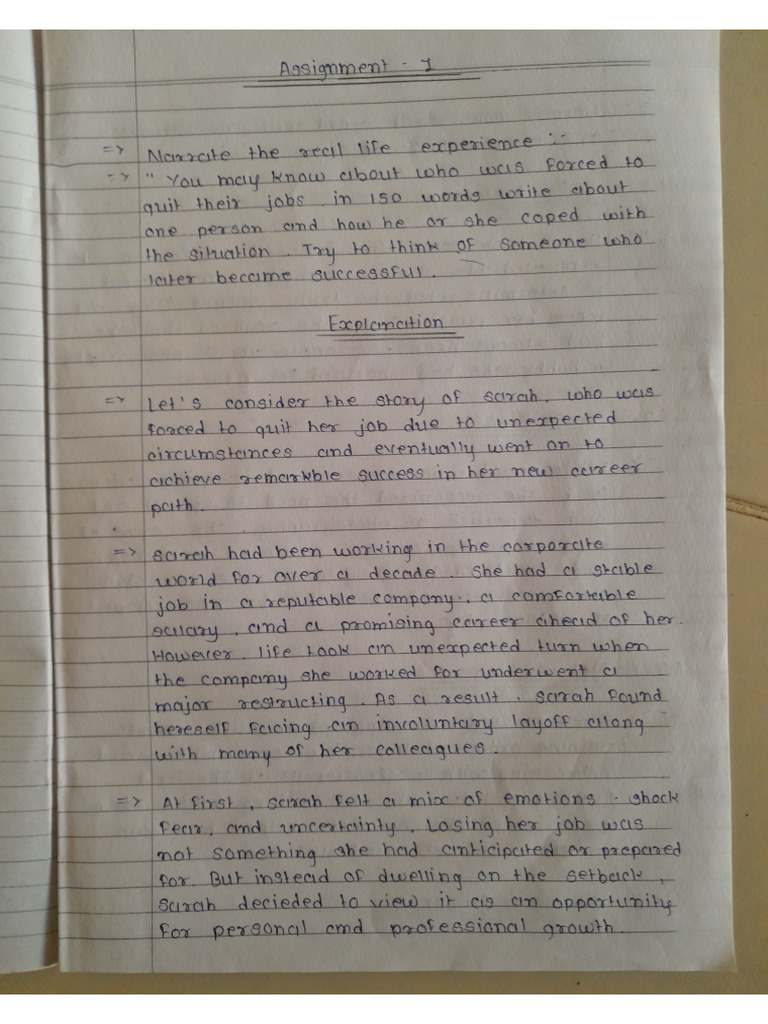 Assignment - 1
=> Narrate the real life experience :-
=> " You may know about who was forced to
quit their jobs in 150 words write about
one person and how he or she coped with
the situation. Try to think of someone who
later became successful.
Explanation
=> Let's consider the story of sarah, who was
forced to quit her job due to unexpected
circumstances and eventually went on to
achieve remarkble success in her new career
path.
=> sarah had been working in the corporate
world for over a decade. She had a stable
job in a reputable company, a comfortable
salary, and a promising career ahead of her.
However, life took an unexpected turn when
the company she worked for underwent a
major restructing. As a result, sarah found
hereself facing an involuntary layoff along
with many of her colleagues.
=> At first, sarah felt a mix of emotions - shock
fear, and uncertainty. Losing her job was
not something she had anticipated or prepared
for. But instead of dwelling on the setback,
sarah decieded to view it as an opportunity
for personal and professional growth.